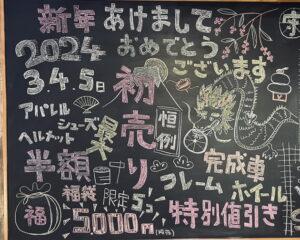 新年
あけまして
おめでとう
ございます
2024
3.4.5日
初売り
恒例
アパレル
シューズ
ヘルメット
最大
半額
完成車
フレーム
ホイール
特別値引き
福袋
限定5コ
5000円
福